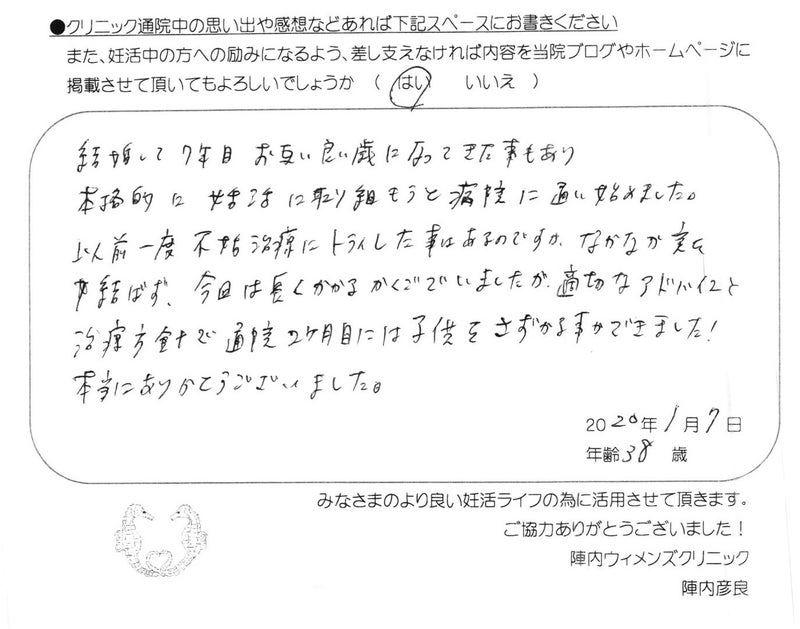 ●クリニック通院中の思い出や感想などあれば下記スペースにお書きください
また、妊活中の方への励みになるよう、差し支えなければ内容を当院ブログやホームページに
掲載させて頂いてもよろしいでしょうか （ はい　　いいえ ）
結婚して7年目 お互い良い歳になってきた事もあり
本格的に 妊活に取り組もうと病院に通い始めました。
以前一度 不妊治療にトライした事はあるのですが、なかなか実を
結ばず、今回は長くかかるかくごでいましたが、適切なアドバイスと
治療方針で 通院2ヶ月目には子供をさずかる事ができました!
本当にありがとうございました。
2020年1月7日
年齢38歳
みなさまのより良い妊活ライフの為に活用させて頂きます。
ご協力ありがとうございました！
陣内ウィメンズクリニック
陣内彦良